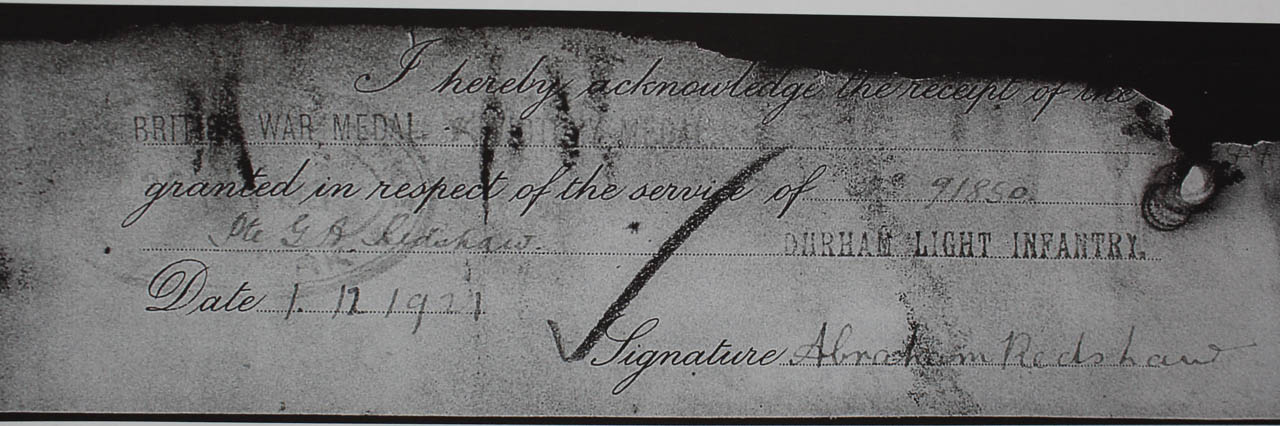 I hereby acknowledge the receipt of the
BRITISH WAR MEDAL & VICTORY MEDAL
granted in respect of the service of No 91850
Pte G A Redshaw.
DURHAM LIGHT INFANTRY.
Date 1. 12 1921
Signature Abraham Redshaw